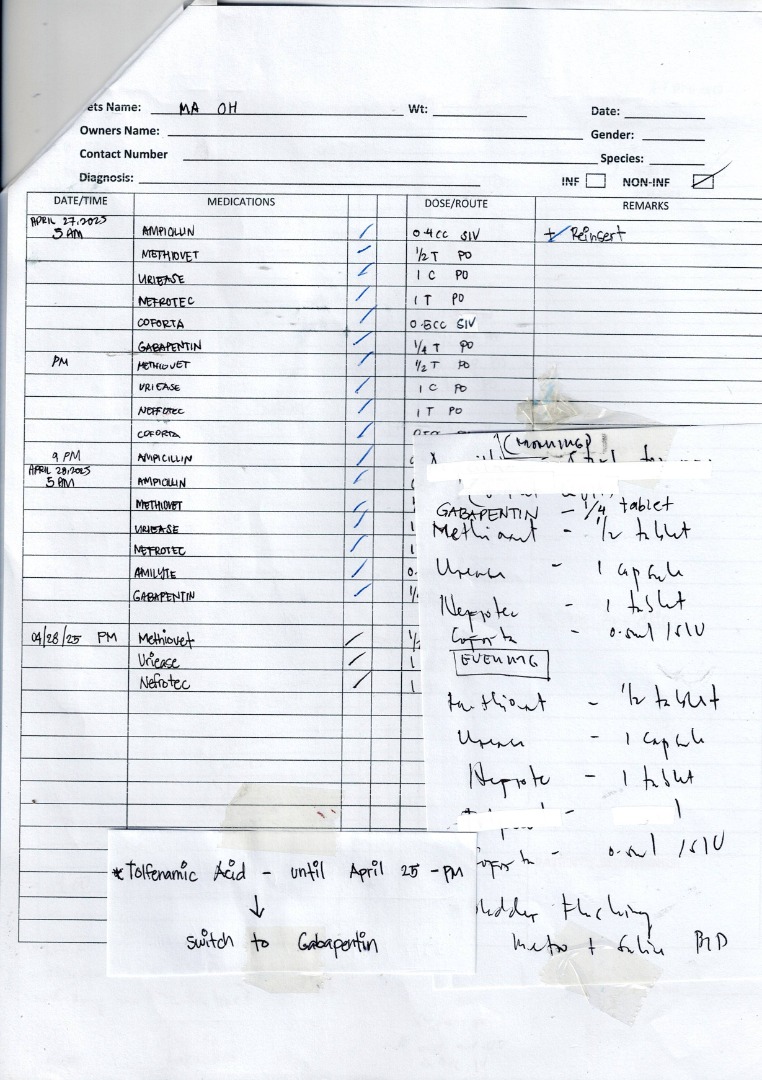 ets Name: MA OH Wt: Date:
Owners Name: Gender:
Contact Number Species:
Diagnosis: INF NON-INF
DATE/TIME MEDICATIONS DOSE/ROUTE REMARKS
APRIL 27, 2025
5 AM AMPICILLIN 0.4cc SIV + Reinsert
METHIOVET 1/2 T PO
URIEASE 1 C PO
NEFROTEC 1 T PO
COFORTA 0.5CC SIV
GABAPENTIN 1/4 T PO
PM METHIOVET 1/2 T PO
URIEASE 1 C PO
NEFROTEC 1 T PO
COFORTA
9 PM AMPICILLIN
APRIL 28, 2025
5 AM AMPICILLIN
METHIOVET
URIEASE 1
NEFROTEC 1
AMILYTE 0.
GABAPENTIN 1/
04/28/25 PM Methiovet 1/2
Uriease 1
Nefrotec 1
(MORNING)
GABAPENTIN - 1/4 tablet
Methiovet - 1/2 tablet
Uriease - 1 capsule
Nefrotec - 1 tablet
Coforta - 0.5ml /SIV
EVENING
Methiovet - 1/2 tablet
Uriease - 1 capsule
Nefrotec - 1 tablet
oforta - 0.5ml /SIV
ladder Flushing
Metro + Saline BID
* Tolfenamic Acid - until April 25 - PM
↓
switch to Gabapentin